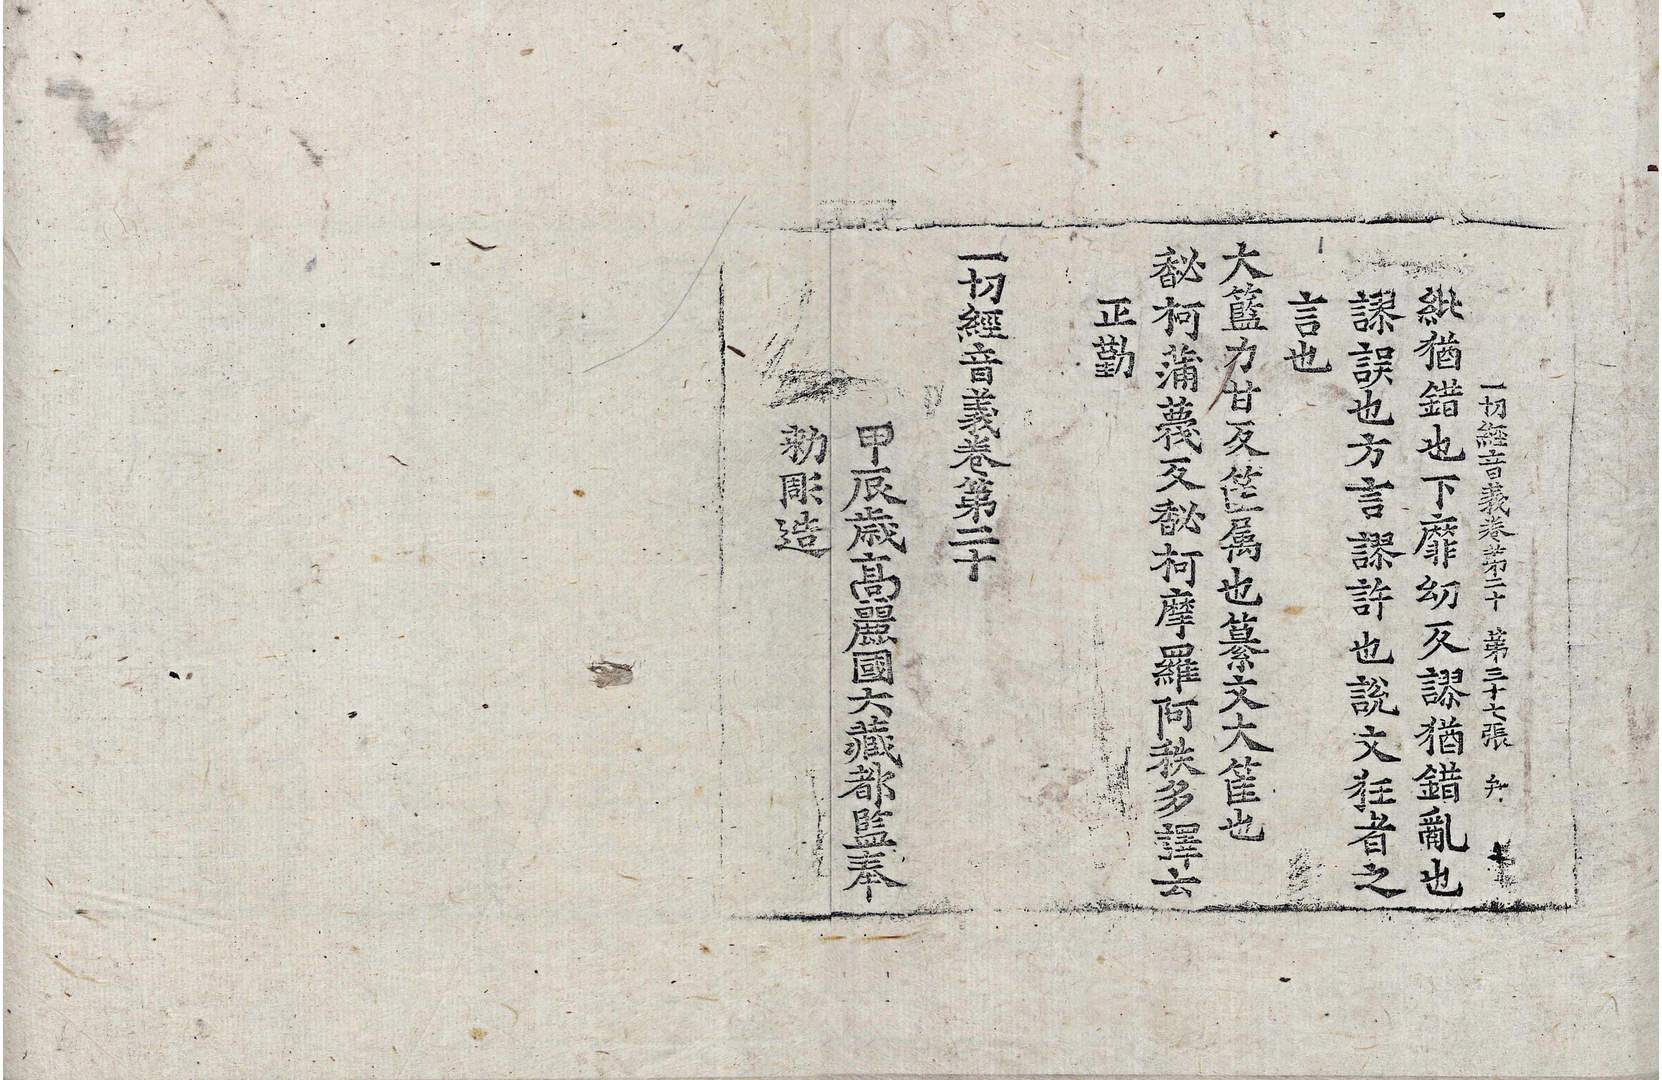 一切經音義卷第二十 第三十七張 弁
紕猶錯也下靡幼反謬猶錯亂也
謬誤也方言謬詐也說文狂者之
言也
大籃力甘反筐属也纂文大筐也
馝柯蒲蔑反馝柯摩羅阿秩多譯云
正勤
一切經音義卷第二十
甲辰歲高麗國大藏都監奉
勅彫造